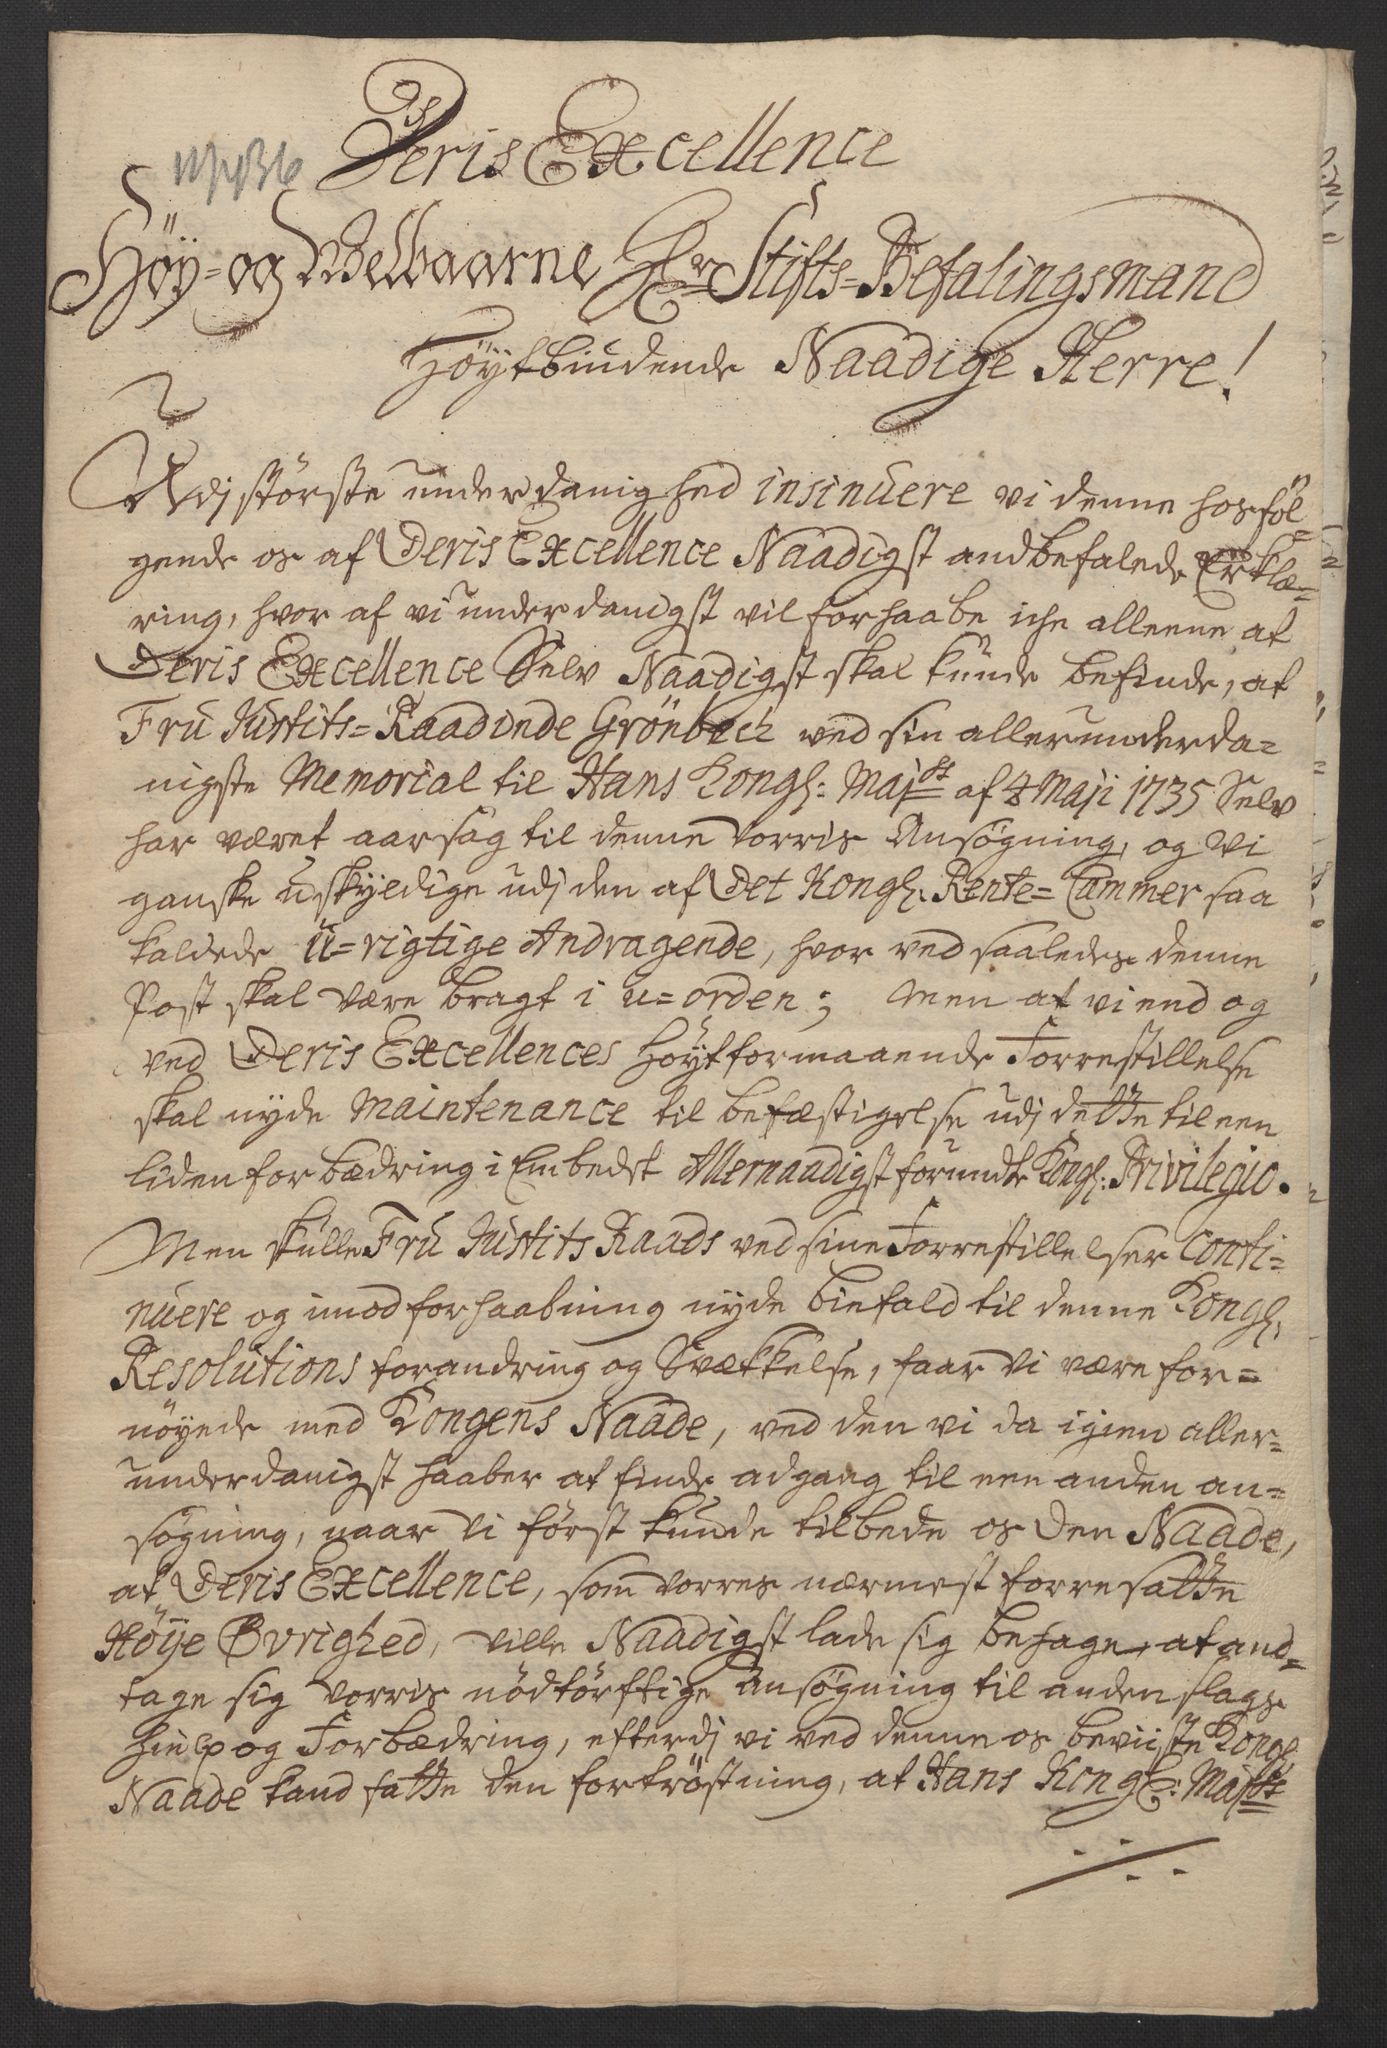 Deris Excellence
Høy- og Welbaarne Hr Stifts-Befalingsmand
Höytbiudende Naadige Herre!
Udj störste underdanighed insinuere vi denne hosföl-
gende os af Deris Excellence Naadigst andbefalede Erklæ-
ring, hvor af vi underdanigst vil forhaabe iche alleene at
Deris Excellence Selv Naadigst skal kunde befinde, at
Fru Justits-Raadinde Grönbech ved sin allerunderda-
nigste Memorial til Hans Kongl: Majts af 4 Maji 1735 Selv
har været aarsag til denne vorris Ansøgning, og vi
ganske uskyldige udj den af Det Kongl. Rente-Cammer saa
kaldede U-rigtige Andragende, hvor ved saaledes denne
Post skal være bragt i u-orden; Men at vi end og
ved Deris Excellences höytformaaende Forrestillelse
skal nyde Maintenance til befæstigelse udj dette til een
liden forbædring i Embedet Allernaadigst forundte Kongl: Privilegio.
Men skulle Fru Justits Raads ved sine Forrestillelser Conti-
nuere og imod forhaabning nyde biefald til denne Kongl.
Resolutions forandring og Svækkelse, faar vi være for-
nöyede med Kongens Naade, ved den vi da igien aller-
underdanigst haaber at finde adgang til een anden an-
søgning, naar vi først kunde tilbede os den Naade,
at Deris Excellence, som vorres nærmest forresatte
Höye Øvrighed, ville Naadigst lade sig behage, at and-
tage sig vorris nödtörftige Ansøgning til anden slags
hielp og Forbædring, efterdj vi ved denne os beviiste Kongl.
Naade kand fatte den fortröstning, at Hans Kongl: Majts